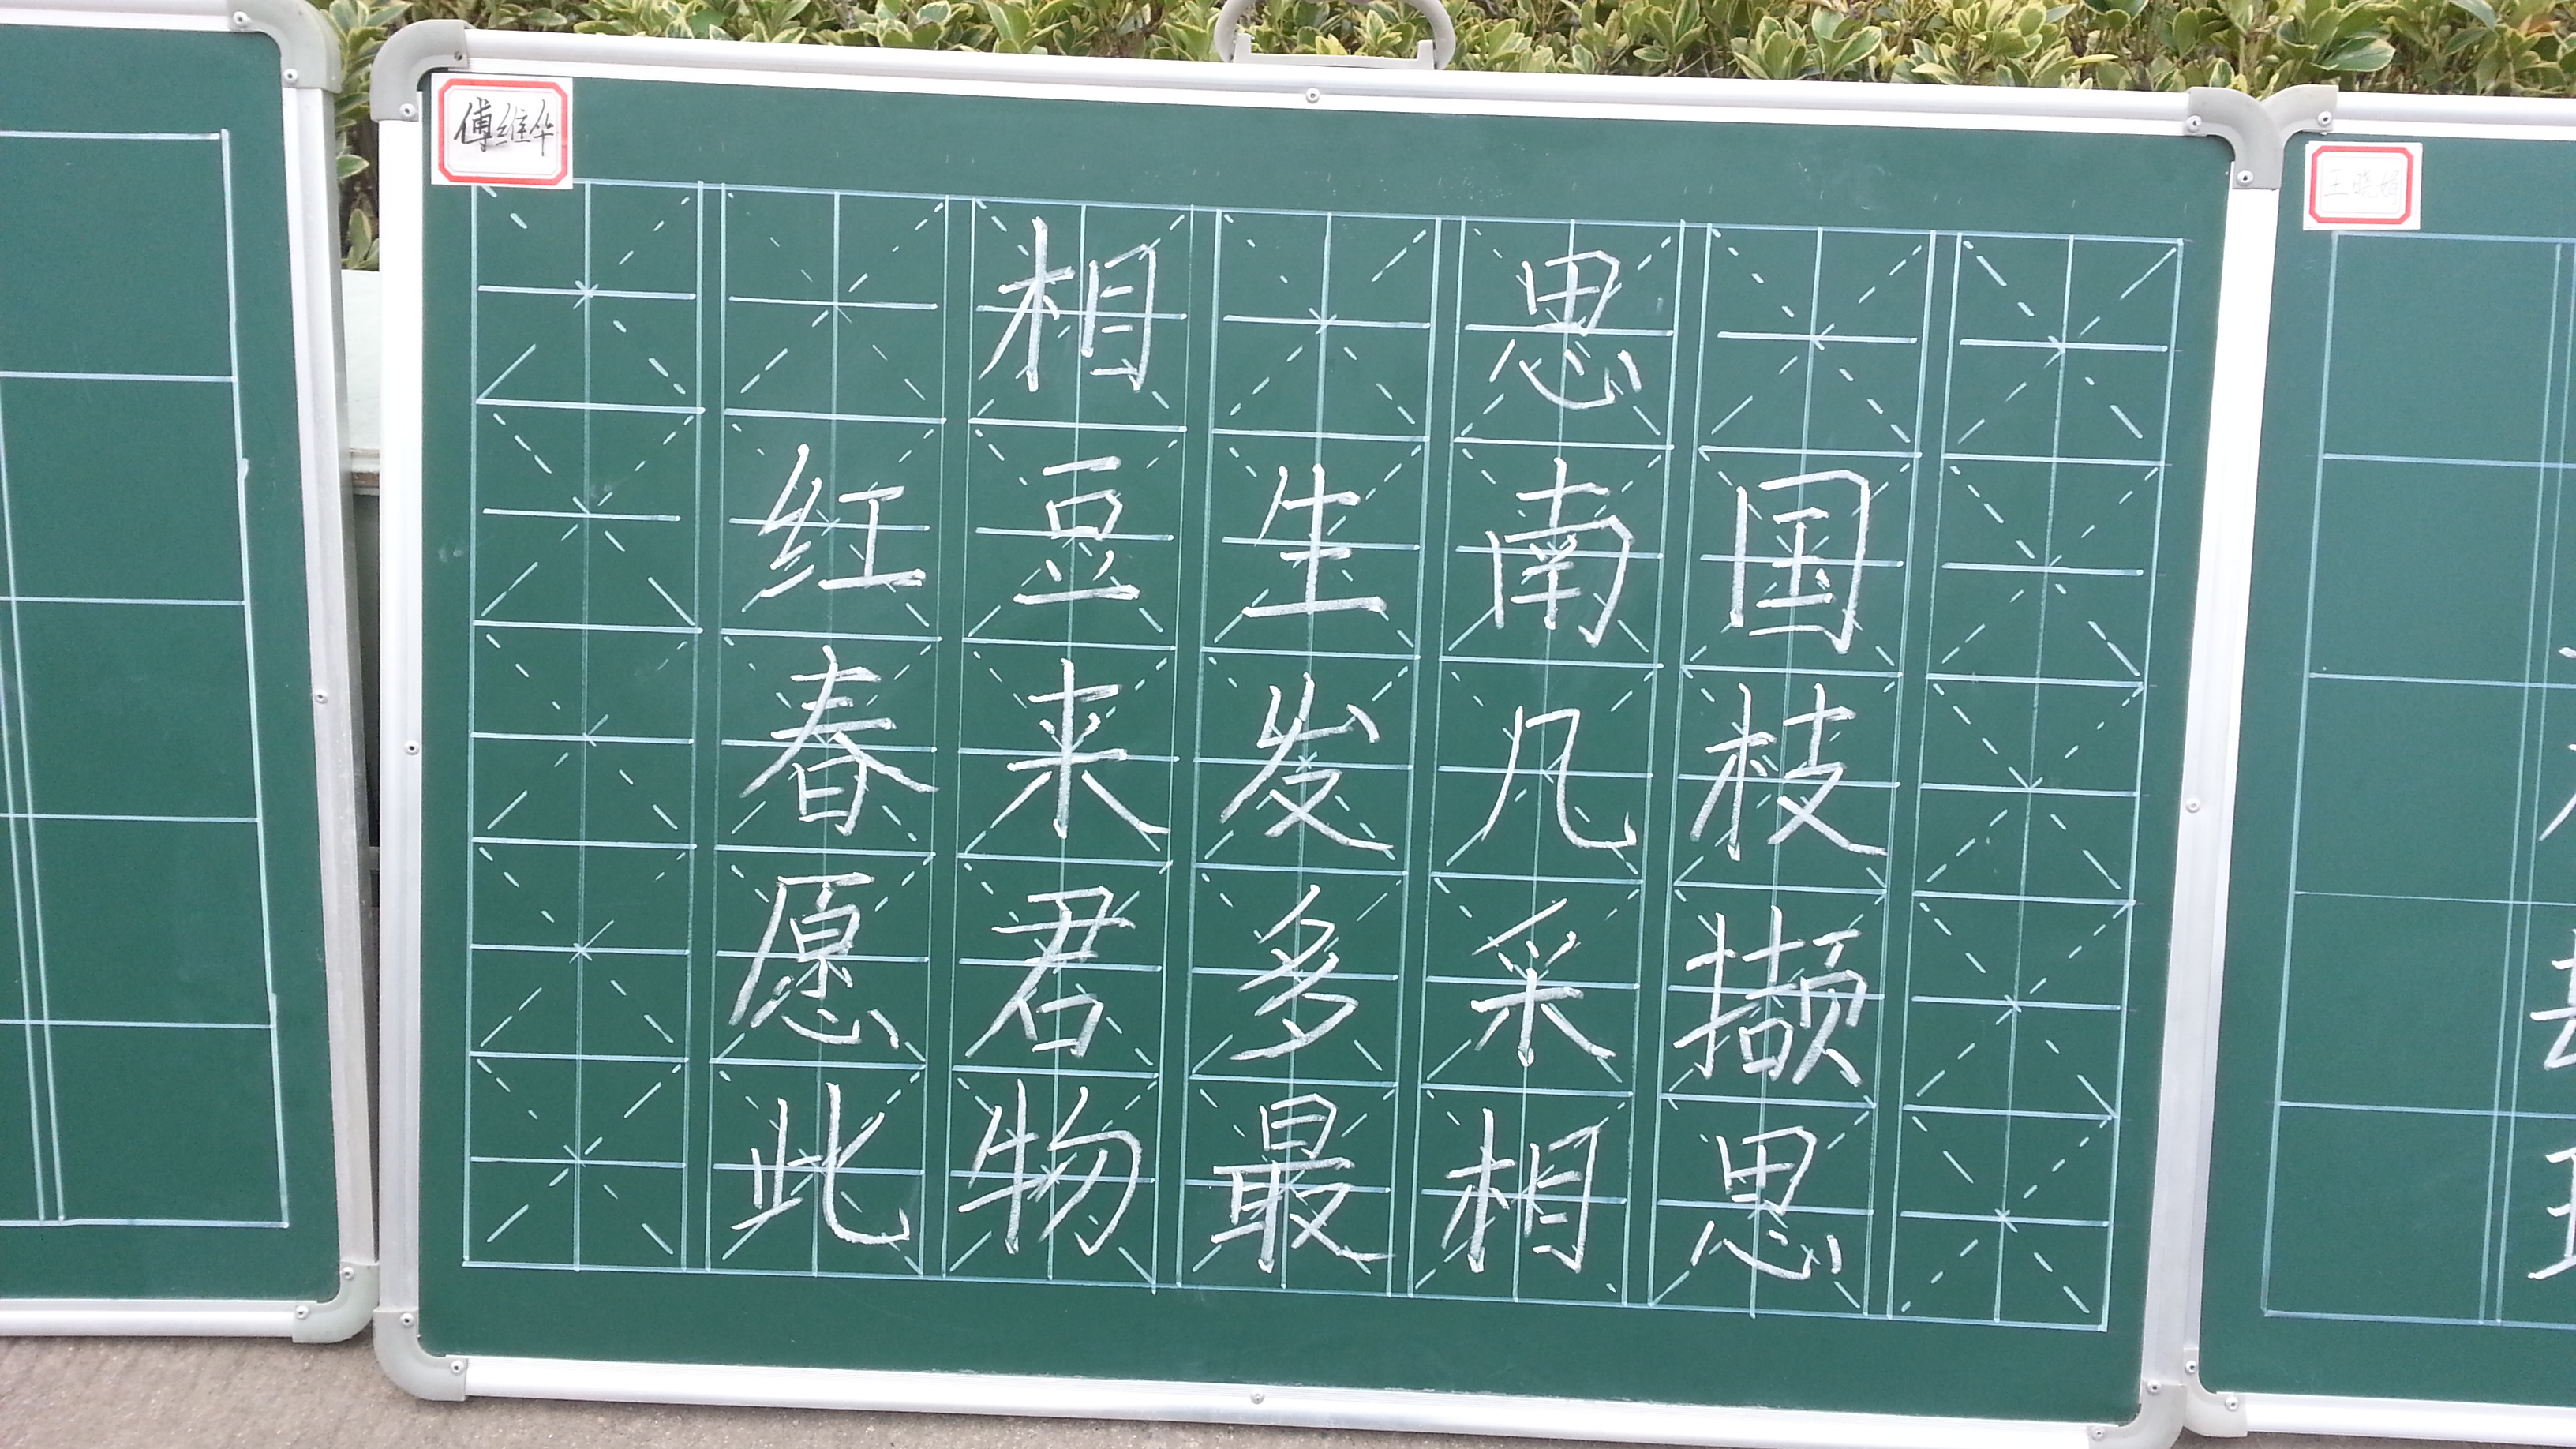 傅维华
相思
红豆生南国
春来发几枝
愿君多采撷
此物最相思